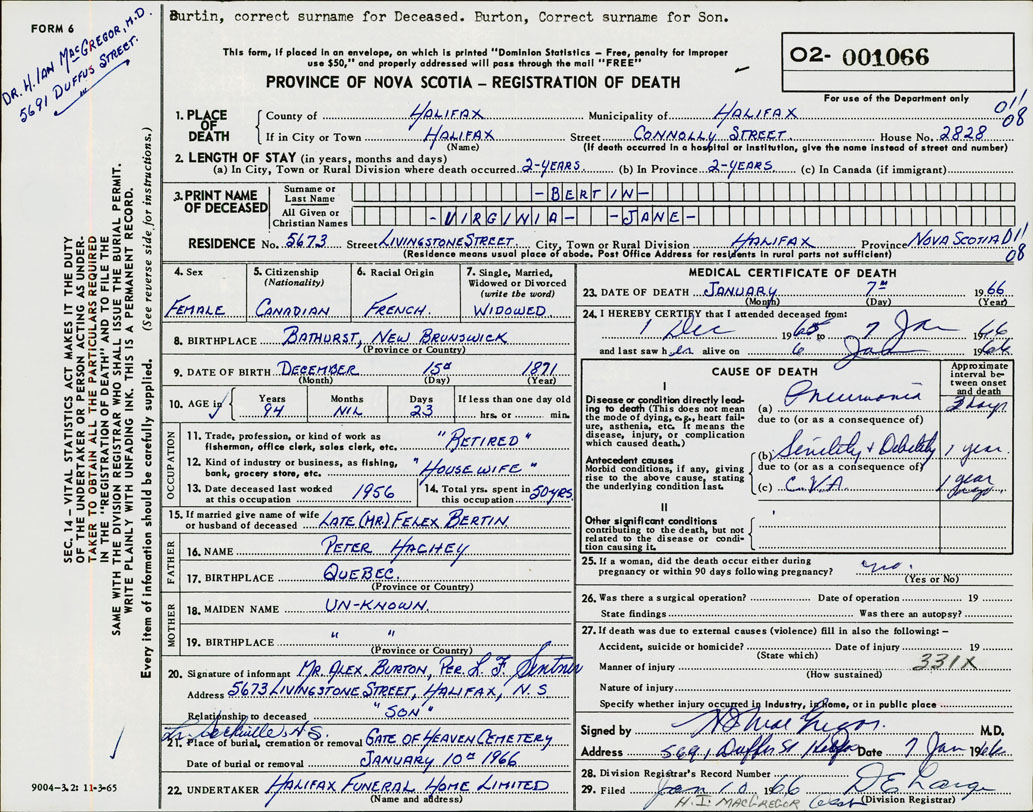 Burtin, correct surname for Deceased. Burton, Correct surname for Son.
FORM 6
DR. H. IAN MACGREGOR, M.D.
5691 DUFFUS STREET.
This form, if placed in an envelope, on which is printed "Dominion Statistics – Free, penalty for improper
use $50," and properly addressed will pass through the mail "FREE"
PROVINCE OF NOVA SCOTIA – REGISTRATION OF DEATH
02- 001066
For use of the Department only
011
08
1. PLACE OF DEATH
County of HALIFAX Municipality of HALIFAX
If in City or Town HALIFAX Street CONNOLLY STREET House No. 2828
(Name) (If death occurred in a hospital or institution, give the name instead of street and number)
2. LENGTH OF STAY (in years, months and days)
(a) In City, Town or Rural Division where death occurred 2-YEARS (b) In Province 2-YEARS (c) In Canada (if immigrant)
3. PRINT NAME OF DECEASED
Surname or Last Name -BERTIN-
All Given or Christian Names -VIRGINIA- -JANE-
RESIDENCE No. 5673 Street LIVINGSTONE STREET City, Town or Rural Division HALIFAX Province NOVA SCOTIA 011
08
(Residence means usual place of abode. Post Office Address for residents in rural parts not sufficient)
4. Sex
FEMALE
5. Citizenship
(Nationality)
CANADIAN
6. Racial Origin
FRENCH.
7. Single, Married,
Widowed or Divorced
(write the word)
WIDOWED
8. BIRTHPLACE BATHURST, NEW BRUNSWICK
(Province or Country)
9. DATE OF BIRTH DECEMBER 15th 1871
(Month) (Day) (Year)
10. AGE in
Years Months Days If less than one day old
94 NIL 23 hrs. or min.
OCCUPATION
11. Trade, profession, or kind of work as
fisherman, office clerk, sales clerk, etc. "RETIRED"
12. Kind of industry or business, as fishing,
bank, grocery store, etc. "HOUSEWIFE"
13. Date deceased last worked
at this occupation 1956
14. Total yrs. spent in
this occupation 50 YRS
15. If married give name of wife
or husband of deceased LATE (MR) FELEX BERTIN.
FATHER
16. NAME PETER HACHEY
17. BIRTHPLACE QUEBEC.
(Province or Country)
MOTHER
18. MAIDEN NAME UN-KNOWN.
19. BIRTHPLACE " "
(Province or Country)
20. Signature of informant MR. ALEX. BURTON, PER. L. F.
Address 5673 LIVINGSTONE STREET, HALIFAX, N.S
Relationship to deceased "SON"
Lr. Sackville N.S.
21. Place of burial, cremation or removal GATE OF HEAVEN CEMETERY
Date of burial or removal JANUARY 10th 1966
22. UNDERTAKER HALIFAX FUNERAL HOME LIMITED
(Name and address)
MEDICAL CERTIFICATE OF DEATH
23. DATE OF DEATH JANUARY 7th 1966
(Month) (Day) (Year)
24. I HEREBY CERTIFY that I attended deceased from:
1 Dec 1965 to 7 Jan 1966
and last saw her alive on 6 Jan 1966
CAUSE OF DEATH
Approximate
interval be-
tween onset
and death
I
Disease or condition directly lead-
ing to death (This does not mean
the mode of dying, e.g., heart fail-
ure, asthenia, etc. It means the
disease, injury, or complication
which caused death.)
(a) Pneumonia days
due to (or as a consequence of)
Antecedent causes
Morbid conditions, if any, giving
rise to the above cause, stating
the underlying condition last.
(b) Senility & Debility 1 year.
due to (or as a consequence of)
(c) C.V.A 1 year
II
Other significant conditions
contributing to the death, but not
related to the disease or condi-
tion causing it.
25. If a woman, did the death occur either during
pregnancy or within 90 days following pregnancy? no.
(Yes or No)
26. Was there a surgical operation? Date of operation 19
State findings Was there an autopsy?
27. If death was due to external causes (violence) fill in also the following:–
Accident, suicide or homicide? Date of injury 19
(State which)
331X
Manner of injury
(How sustained)
Nature of injury
Specify whether injury occurred in industry, in home, or in public place
Signed by H I MacGregor M.D.
Address 5691 Duffus St Halifax Date 7 Jan 1966
28. Division Registrar's Record Number
29. Filed Jan 10 1966
(Division Registrar)
H. I. MACGREGOR
SEC. 14 – VITAL STATISTICS ACT MAKES IT THE DUTY
OF THE UNDERTAKER OR PERSON ACTING AS UNDER-
TAKER TO OBTAIN ALL THE PARTICULARS REQUIRED
IN THE "REGISTRATION OF DEATH" AND TO FILE THE
SAME WITH THE DIVISION REGISTRAR WHO SHALL ISSUE THE BURIAL PERMIT.
WRITE PLAINLY WITH UNFADING INK. THIS IS A PERMANENT RECORD.
Every item of information should be carefully supplied. (See reverse side for instructions.)
9004–3.2: 11-3-65